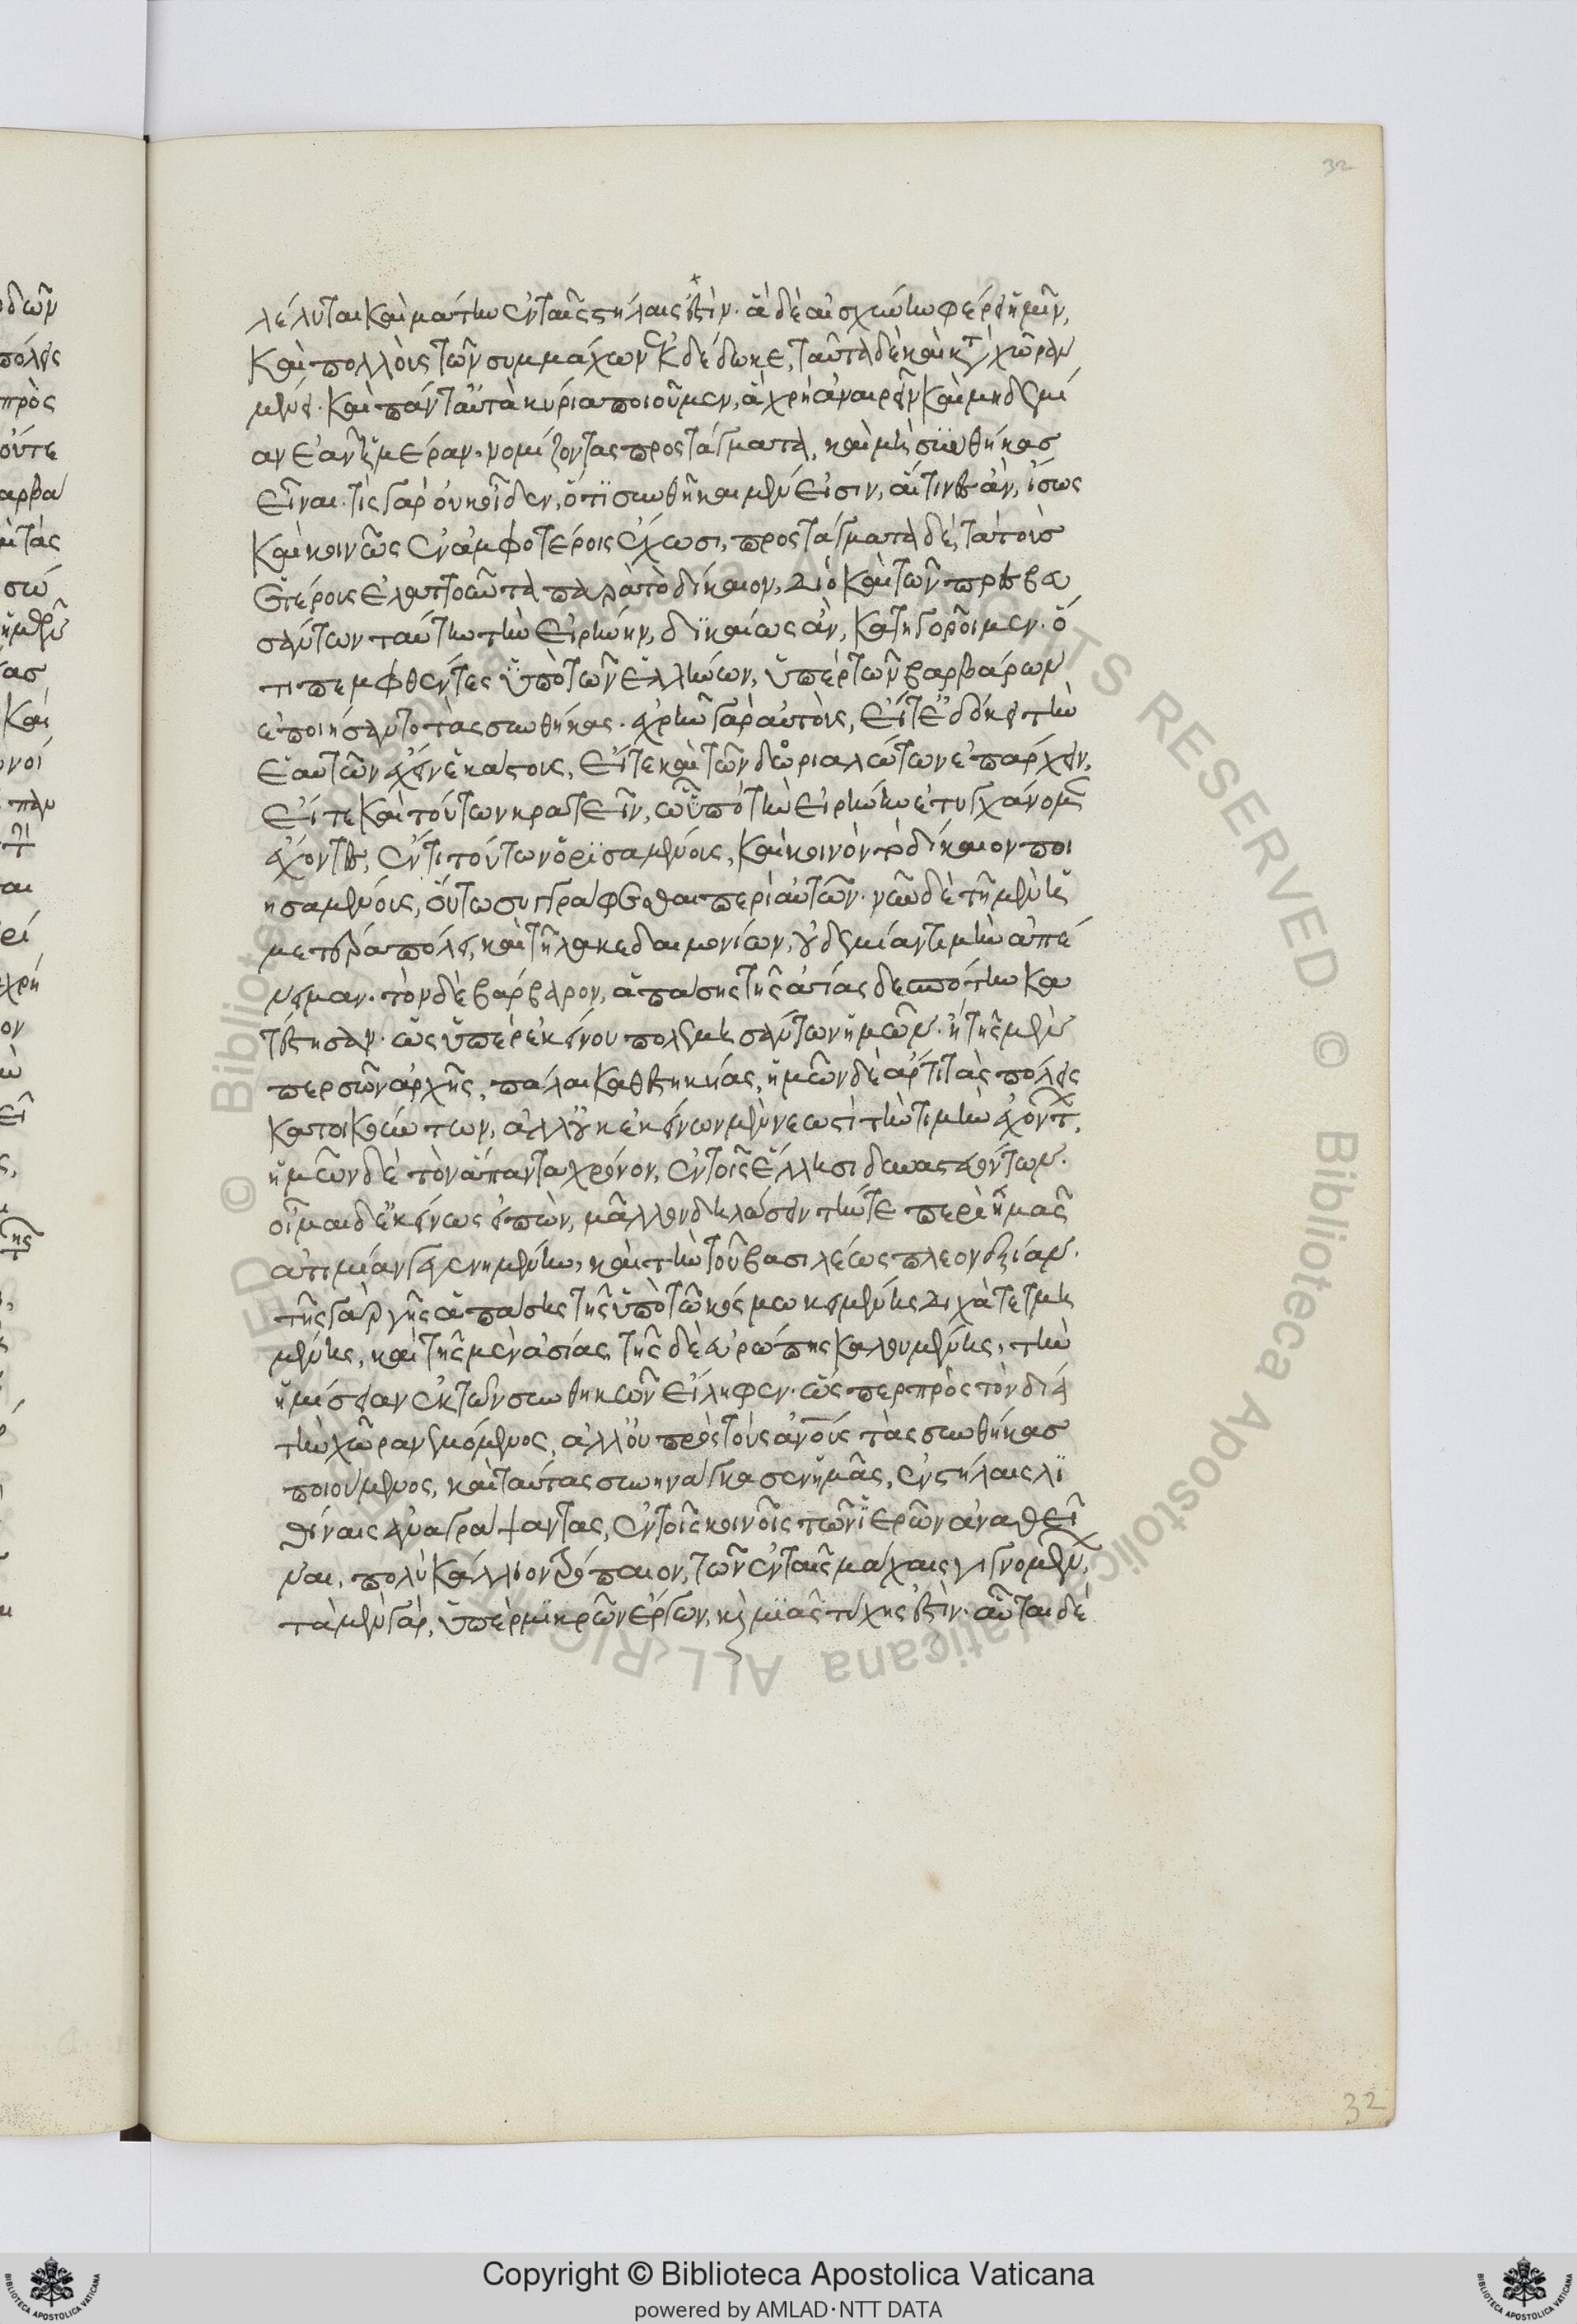 λέλυται καὶ μάτην ἐν ταῖς στήλαις ἐστίν. ἃ δὲ αἰσχύνην φέρει ἡμῖν,
καὶ πολλοὺς τῶν συμμάχων ἐκδέδωκε, ταῦτα δὲ καὶ κτ χώραν
μένει. καὶ πάντ' αὐτὰ κύρια ποιοῦμεν, ἃ χρὴ ἀναιρεῖν καὶ μηδεμί
αν ἐᾶν ἡμέραν, νομίζοντας προστάγματα, καὶ μὴ συνθήκας
εἶναι. τίς γὰρ οὐκ οἶδεν, ὅτι συνθῆκαι μέν εἰσιν, αἵτινες ἂν, ἴσως
καὶ κοινῶς ἐν ἀμφοτέροις ἔχωσι, προστάγματα δὲ, τὰ τοὺς
ἑτέροις ἐλαττοῦντα παρὰ τὸ δίκαιον, διὸ καὶ τῶν πρεσβευ
σάντων ταύτην τὴν εἰρήνην, δικαίως ἂν, κατηγοροῖμεν. ὅ
τι πεμφθέντες ὑπὸ τῶν ἑλλήνων, ὑπὲρ τῶν βαρβάρων
ἐποιήσαντο τὰς συνθήκας. ἐχρῆν γὰρ αὐτοὺς, εἴτ' ἐδόκει τὴν
ἑαυτῶν ἔχειν ἑκάστοις, εἴτε καὶ τῶν δοριαλώτων ἐπάρχειν,
εἴτε καὶ τούτων κρατεῖν, ὧν ὑπὸ τὴν εἰρήνην ἐτυγχάνομεν
ἔχοντες, ἕν τι τούτων ὁρισαμένοις, καὶ κοινὸν τὸ δίκαιον ποι
ησαμένοις, οὕτω συγγράφεσθαι περὶ αὐτῶν. νῦν δὲ τῇ μὲν ἡ
μετέρα πόλει, καὶ τῇ λακεδαιμονίων, οὐδεμίαν τιμὴν ἀπέ
νειμαν. τὸν δὲ βάρβαρον, ἁπάσης τῆς ἀσίας δεσπότην κα
τέστησαν. ὡς ὑπὲρ ἐκείνου πολεμησάντων ἡμῶν. ἢ τῆς μὲν
περσῶν ἀρχῆς, πάλαι καθεστηκυίας, ἡμῶν δὲ ἄρτι τὰς πόλεις
κατοικούντων, ἀλλ' οὐκ ἐκείνων μὲν νεωστὶ τὴν τιμὴν ἐχόντων,
ἡμῶν δὲ τὸν ἅπαντα χρόνον, ἐν τοῖς ἕλλησι δυναστευόντων.
οἶμαι δ' ἐκείνως εἰπὼν, μᾶλλον δηλώσειν τήν τε περὶ ἡμᾶς
ἀτιμίαν γεγενημένην, καὶ τὴν τοῦ βασιλέως πλεονεξίαν.
τῆς γὰρ γῆς ἁπάσης τῆς ὑπὸ τῷ κόσμῳ κειμένης δίχα τετμη
μένης, καὶ τῆς μὲν ἀσίας, τῆς δὲ εὐρώπης καλουμένης, τὴν
ἡμίσειαν ἐκ τῶν συνθηκῶν εἴληφεν. ὥσπερ πρὸς τὸν δία
τὴν χώραν νεμόμενος, ἀλλ' οὐ πρὸς τοὺς ἀνους τὰς συνθήκας
ποιούμενος, καὶ ταύτας συνηνάγκασεν ἡμᾶς, ἐν στήλαις λι
θίναις ἀναγράψαντας, ἐν τοῖς κοινοῖς τῶν ἱερῶν ἀναθεῖ
ναι, πολὺ κάλλιον τρόπαιον, τῶν ἐν ταῖς μάχαις γιγνομένων,
τὰ μὲν γὰρ, ὑπὲρ μικρῶν ἔργων, κὶ μιᾶς τύχης ἐστίν. αὗται δὲ
32
32
Copyright © Biblioteca Apostolica Vaticana
powered by AMLAD·NTT DATA